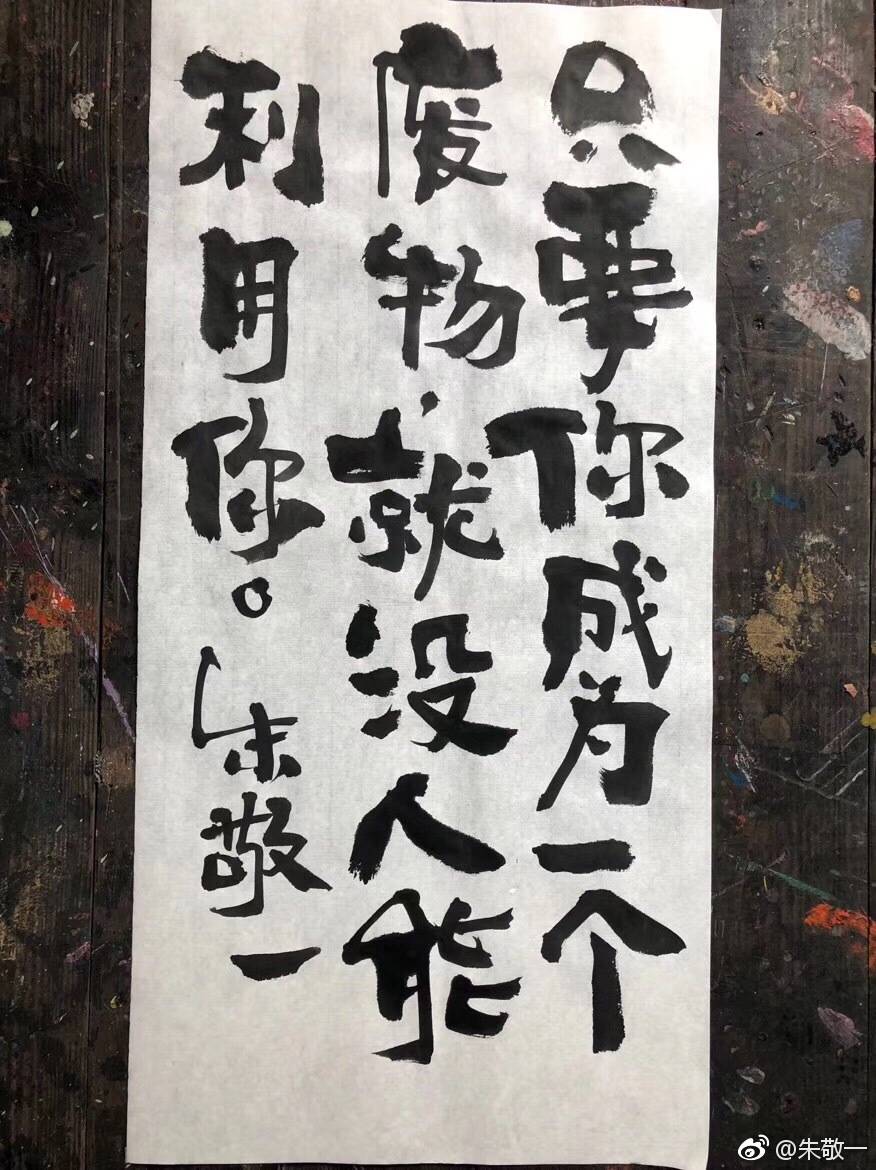 只要你成为一个
废物,就没人能
利用你。朱敬一
@朱敬一